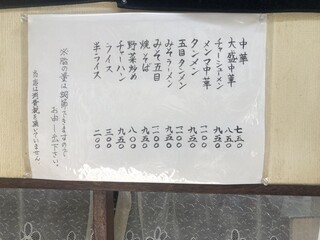 中華 七五〇
大盛中華 八五〇
チャーシューメン 九五〇
メンマ中華 九五〇
タンメン 一〇〇〇
五目タンメン 一一〇〇
みそラーメン 九五〇
みそ五目 一一〇〇
焼そば 九五〇
野菜炒め 八〇〇
チャーハン 九五〇
ライス 三〇〇
半ライス 二〇〇
※脂の量は調節できますので
お申し出下さい。
当店は消費税を頂いていません。